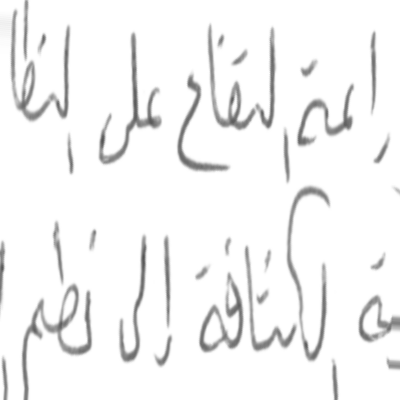 راعة التفاح على النظا
ية الكثافة إلى نظم